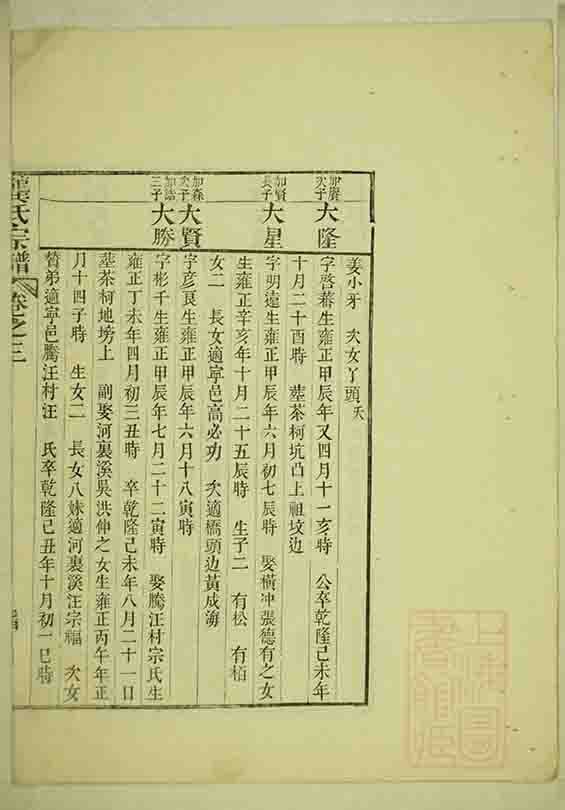 姜小牙 次女丫頭夭
加賡
次子
大隆
字啓蓉生雍正甲辰年又四月十一亥時 公卒乾隆己未年
十月二十酉時 塟茶柯坑凸上祖墳边
加賢
長子
大星
字明遠生雍正甲辰年六月初七辰時 娶橫冲張德有之女
生雍正辛亥年十月二十五辰時 生子二 有松 有栢
女二 長女適寧邑高必功 次適橋頭边黃成海
加森
次子
大賢
字彦良生雍正甲辰年六月十八寅時
三子
大勝
字彬千生雍正甲辰年七月二十二寅時 娶騰汪村宗氏生
雍正丁未年四月初三丑時 卒乾隆己未年八月二十一日
塟茶柯地塝上 副娶河裏溪吳洪伸之女生雍正丙午年正
月十四子時 生女二 長女八妹適河裏溪汪宗福 次女
贊弟適寧邑騰汪村汪 氏卒乾隆己丑年十月初一巳時
龔氏宗譜 卷之三
上海圖書館藏